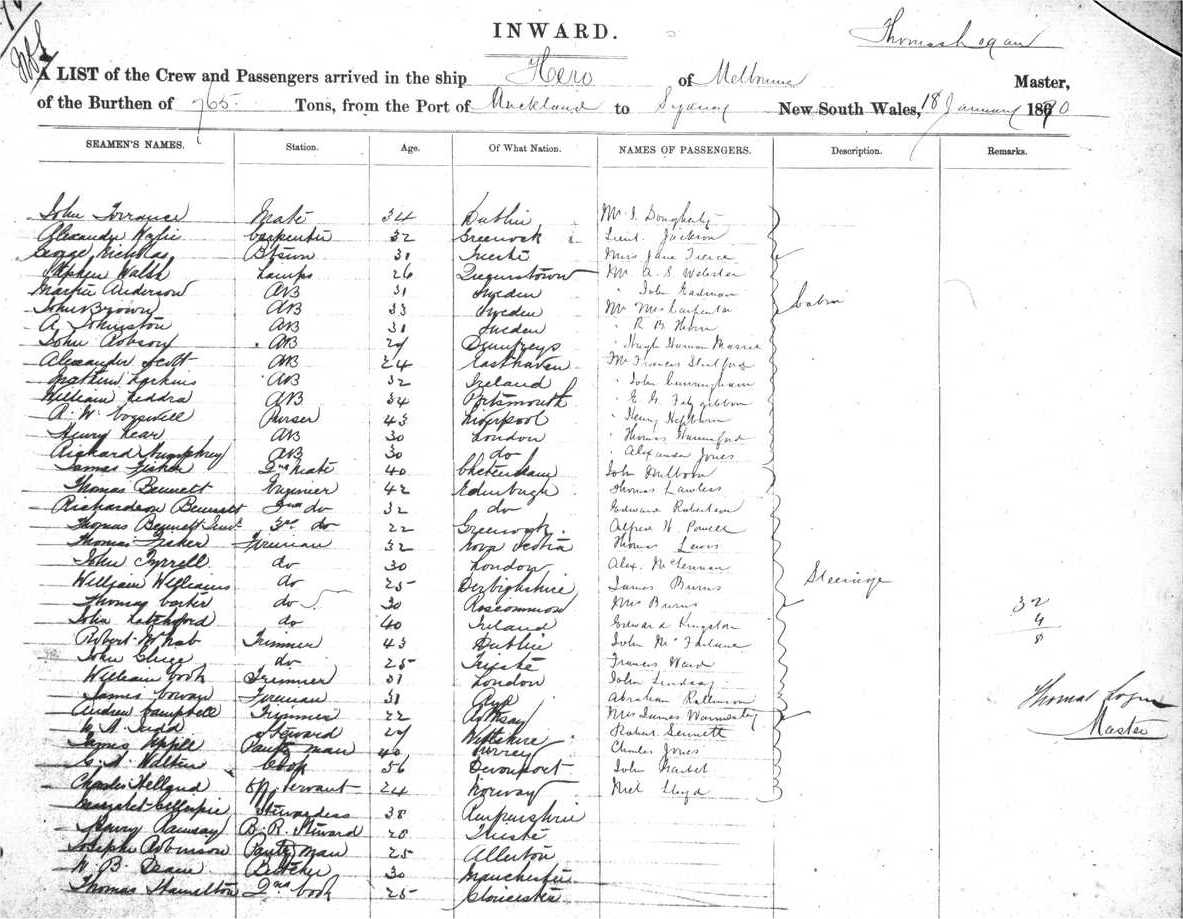 INWARD.
Thomas Logan
A LIST of the Crew and Passengers arrived in the ship Hero of Melbourne Master,
of the Burthen of 765 Tons, from the Port of Auckland to Sydney New South Wales, 18 January 1870
SEAMEN'S NAMES. Station. Age. Of What Nation. NAMES OF PASSENGERS. Description. Remarks.
John Torrance Mate 34 Dublin Mr I. Dougherty
Alexander Wylie Carpenter 32 Greenock Lieut. Jackson
George Nicholas Btswn 31 Trieste Miss Jane Pierce
Stephen Walsh Lamps 26 Queenstown Mr A. S. Webster
Martin Anderson AB 31 Sweden " John Eadman
John Brown AB 33 Sweden Mr Carpenter Cabin
A. Johnston AB 31 Sweden " R B
John Robson AB 29 Dumfreys " Hugh
Alexander Scott AB 24 Easthaven Mr Francis
Larkins AB 32 Ireland " John Cunningham
William Leddra AB 34 Portsmouth " E G Fitzgibbon
A. W. Purser 43 Liverpool " Henry Hepburn
Henry Lear AB 30 London " Thomas
Richard Humphrey AB 30 do " Alexander Jones
James Fisher 2nd Mate 40 Cheltenham John
Thomas Bennett Enginier 42 Edinburgh Thomas Lawless
Richardson Bennett 2nd do 32 do Edward Robertson
Thomas Bennett Junr. 3rd do 22 Greenock Alfred W. Powell
Thomas Fraker Fireman 32 Nova Scotia Thomas Lewis
John Tyrrell do 30 London Alex. McLennan
William Williams do 25 Derbighshire James Burns Steerage
Thomas Carter do 30 Roscommon Mrs Burns 32
John Latchford do 40 Ireland Edward Kingston 4
Robert McNab Trimmer 43 Dublin John McFarlane 8
John do 25 Trieste Francis Ward
William Cook Trimmer 31 London John Lindsay
James Cowan Fireman 31 Ayr Abraham Rattenson Thomas Logan
Andrew Campbell Trimmer 22 Rothsay Mrs James Master
Judd Steward 29 Wiltshire Robert Bennett
James Uppill Pantry man 40 Surrey Charles Jones
G. A. Walker Cook 56 Devonport John
Charles Helland Servant 24 Norway Lloyd
Margaret Gillespie Stewardess 38 Renfrewshire
Henry Ramsay B. R. Steward 20 Trieste
Joseph Robinson Pantry man 25 Allerton
W. B. Deane Butcher 30 Manchester
Thomas Hamilton 2nd Cook 25 Gloucester